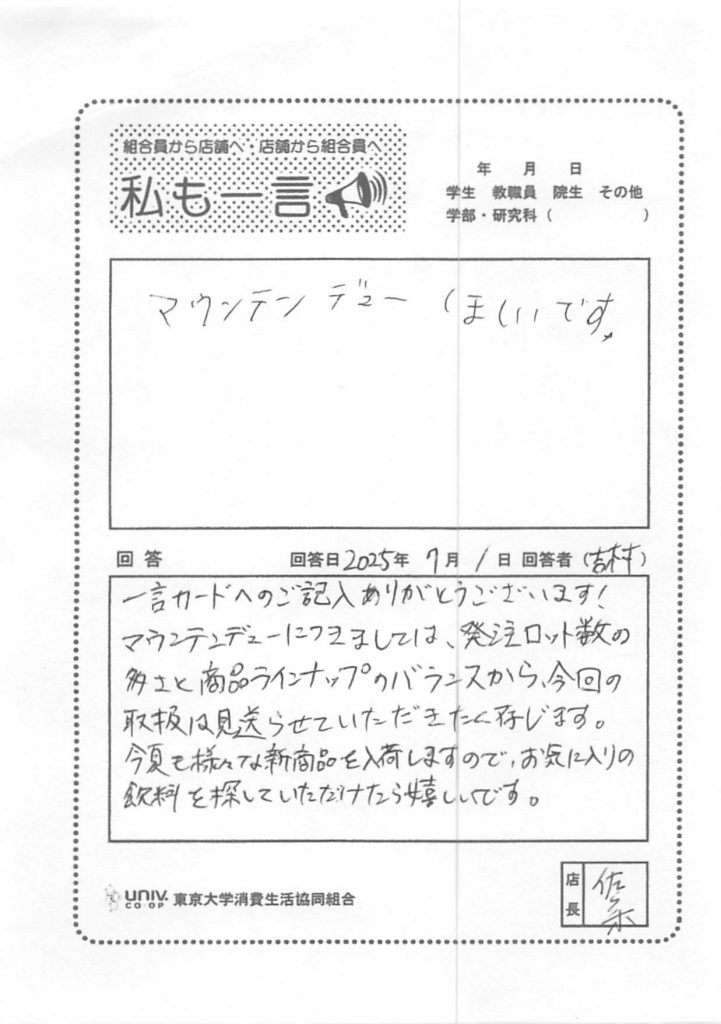 組合員から店舗へ・店舗から組合員へ
私も一言
年 月 日
学生 教職員 院生 その他
学部・研究科（ ）
マウンテンデューほしいです
回答 回答日2025年7月1日 回答者（吉村）
一言カードへのご記入ありがとうございます！
マウンテンデューにつきましては、発注ロット数の
多さと商品ラインナップのバランスから、今回の
取扱は見送らせていただきたく存じます。
今夏も様々な新商品を入荷しますので、お気に入りの
飲料を探していただけたら嬉しいです。
UNIV.
CO-OP
東京大学消費生活協同組合
店長